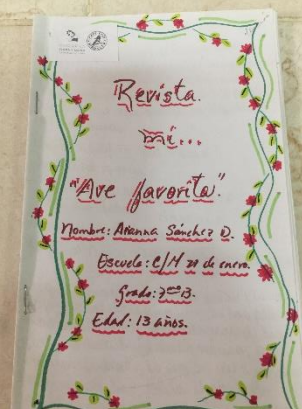 Revista.
mi...
"Ave favorita".
Nombre: Arianna Sánchez D.
Escuela: C/M 28 de enero.
Grado: 7mo B.
Edad: 13 años.